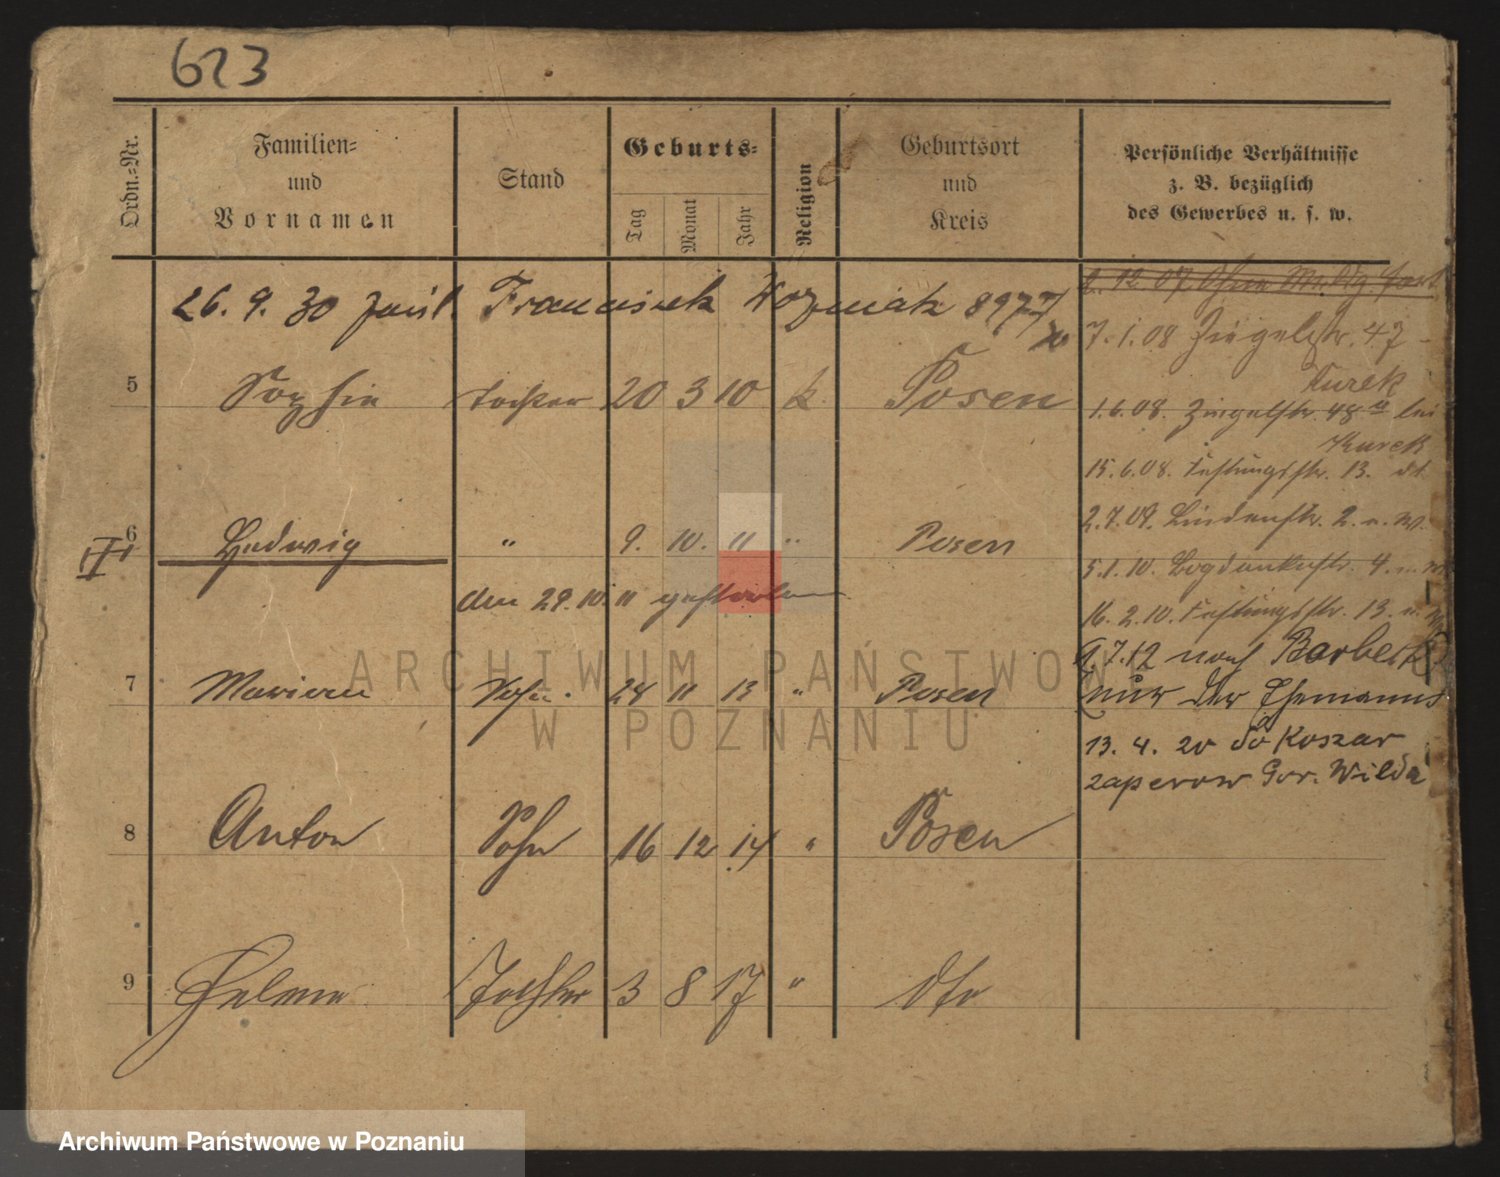 623
Ordn.-Nr.
Familien-
und
Vornamen
Stand
Geburts-
Tag
Monat
Jahr
Religion
Geburtsort
und
Kreis
Persönliche Verhältnisse
z. B. bezüglich
des Gewerbes u. s. w.
26. 9. 30 Franciszek Wozniak 8977
2. 12 07 Ohne Mldg fort
7.1.08 Ziegelstr. 47
Kurek
5 Sophie Tochter 20 3 10 k. Posen
1.6.08. Ziegelstr. 48 bei
Kurek
15.6.08. Festungsstr. 13.
2.7.09. Lindenstr. 2.
6 Hedwig " 9. 10. 11 " Posen
5.1.10. Bogdankastr. 4.
den 29.10.11 gestorben
16.2.10. Festungsstr. 13.
9.7.12 nach
7 Marian Sohn 24 11 13 " Posen
(nur der Ehemann
13. 4. 20 do Koszar
zaperow Gor. Wilda
8 Anton Sohn 16 12 14 " Posen
9 Helene Tochter 3 8 17 " dto
ARCHIWUM PAŃSTWOWE
W POZNANIU
Archiwum Państwowe w Poznaniu